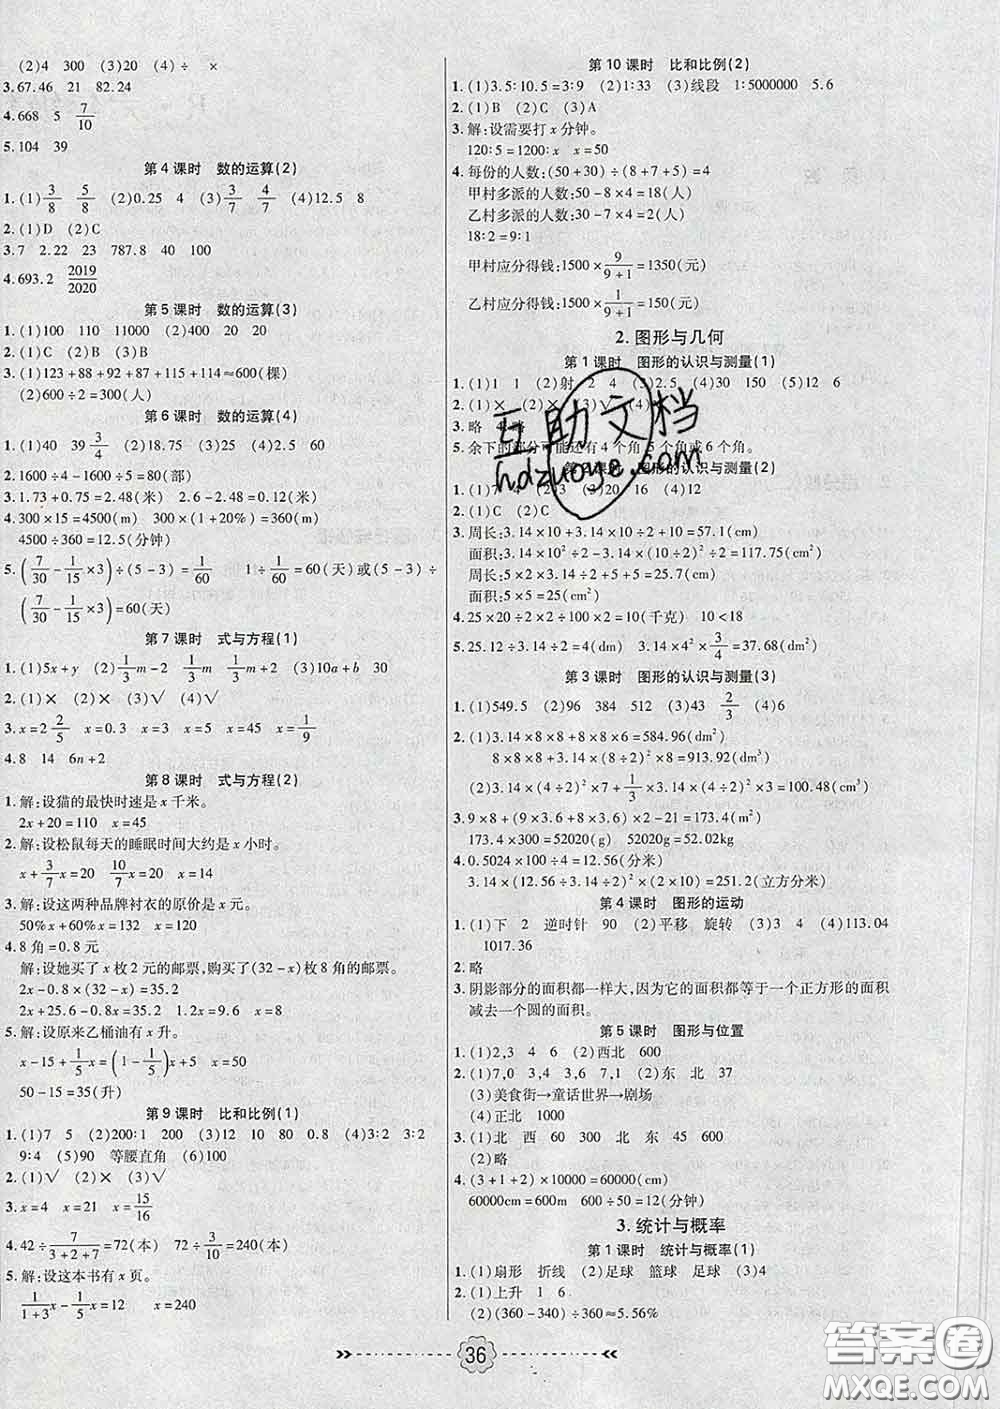 (2)4 300 (3)20 (4)÷ ×
3.67.46 21 82.24
4.668 5 7/10
5.104 39
第4课时 数的运算(2)
1.(1)3/8 5/8 (2)0.25 4 (3)3/7 4/7 (4)12.5 8
2.(1)D (2)C
3.7 2.22 23 787.8 40 100
4.693.2 2019/2020
第5课时 数的运算(3)
1.(1)100 110 11000 (2)400 20 20
2.(1)C (2)C
3.(1)123+88+92+87+115+114≈600(棵)
(2)600÷2=300(人)
第6课时 数的运算(4)
1.(1)40 39 3/4 (2)18.75 (3)25 (4)25
2.1600÷4-1600÷5=80(部)
3.1.73+0.75=2.48(米) 2.6-2.48=0.12(米)
4.300×15=4500(m) 300×(1+20%)=360(m)
4500÷360=12.5(分钟)
5.(7/30-1/15×3)÷(5-3)=1/60 1÷1/60=60(天)或(5-3)÷
(7/30-1/15×3)=60(天)
第7课时 式与方程(1)
1.(1)5x+y (2)1/3m-2 1/3m 1/3m+2 (3)10a+b 30
2.(1)× (2)× (3)√ (4)√
3.x=2 2/5 x=0.3 x=3 x=5 x=45 x=1/9
4.8 14 6n+2
第8课时 式与方程(2)
1.解:设猫的最快时速是x千米。
2x+20=110 x=45
2.解:设松鼠每天的睡眠时间大约是x小时。
x+3/7x=20 10/7x=20 x=14
3.解:设这两种品牌衬衣的原价是x元。
50%x+60%x=132 x=120
4.8角=0.8元
解:设她买了x枚2元的邮票,购买了(32-x)枚8角的邮票。
2x-0.8×(32-x)=8
2x+25.6-0.8x=8 1.2x=9.6 x=8
5.解:设原来乙桶油有x升。
x-15+1/5x=(1-1/5)x+5 x=50
50-15=35(升)
第9课时 比和比例(1)
1.(1)7 5 (2)200∶1 200 (3)12 10 80 0.8 (4)3∶2 3∶2
9∶4 (5)90 等腰直角 (6)100
2.(1)√ (2)× (3)√
3.x=4 x=21 x=15/16
4.42÷7/(3+2+7)=72(本) 72÷3/10=240(本)
5.解:设这本书有x页。
1/(1+3)x-1/5x=12 x=240
第10课时 比和比例(2)
1.(1)3.5∶10.5=3∶9 (2)1∶33 (3)线段 1∶5000000 5.6
2.(1)B (2)C (3)A
3.解:设需要打x分钟。
120∶5=1200∶x x=50
4.每份的人数:(50+30)÷(8+7+5)=4(人)
甲村多派的人数:50-8×4=18(人)
乙村多派的人数:30-7×4=2(人)
18∶2=9∶1
甲村应分得钱:1500×9/(9+1)=1350(元)
乙村应分得钱:1500×1/(9+1)=150(元)
2.图形与几何
第1课时 图形的认识与测量(1)
1.(1)1 1 (2)射 2 4 (3)2.5 (4)30 150 (5)12 6
2.(1)× (2)× (3)√ (4)
3.略 4.略
5.余下的部分可能还有4个角、5个角或6个角。
第2课时 图形的认识与测量(2)
1.(1)7 4 (2)3 (3)20 16 (4)12
2.(1)C (2)C
3.周长:3.14×10+3.14×10÷2+10=57.1(cm)
面积:3.14×(10÷2)²+3.14×(10÷2)²÷2=117.75(cm²)
周长:5×2×3.14÷2+5+5=25.7(cm)
面积:5×5=25(cm²)
4.25×20÷2×2÷100×2=10(千克) 10<18
5.25.12÷3.14÷2=4(dm) 3.14×4²×3/4=37.68(dm²)
第3课时 图形的认识与测量(3)
1.(1)549.5 (2)96 384 512 (3)43 2/3 (4)6
2.(1)3.14×8×8+8×8×6=584.96(dm²)
8×8×8+3.14×(8÷2)²×8=913.92(dm³)
(2)3.14×(4÷2)²×7+1/3×3.14×(4÷2)²×3=100.48(cm³)
3.9×8+(9×3.6+8×3.6)×2-21=173.4(m²)
173.4×300=52020(g) 52020g=52.02kg
4.0.5024×100÷4=12.56(分米)
3.14×(12.56÷3.14÷2)²×(2×10)=251.2(立方分米)
第4课时 图形的运动
1.(1)下 2 逆时针 90 (2)平移 旋转 (3)3 4 (4)113.04
1017.36
2.略
3.阴影部分的面积都一样大,因为它的面积都等于一个正方形的面积
减去一个圆的面积。
第5课时 图形与位置
1.(1)2,3 4 6 (2)西北 600
2.(1)7,0 3,4 3,6 7,1 (2)东 北 37
(3)美食街→童话世界→剧场
(4)正北 1000
3.(1)北 西 60 300 北 东 45 600
(2)略
4.(3+1+2)×10000=60000(cm)
60000cm=600m 600÷50=12(分钟)
3.统计与概率
第1课时 统计与概率(1)
1.(1)扇形 折线 (2)足球 篮球 足球 (3)4
2.(1)上升 1 6
(2)(360-340)÷360≈5.56%
36
互助文档
hdzuoye.com
答案圈
MXQE.COM